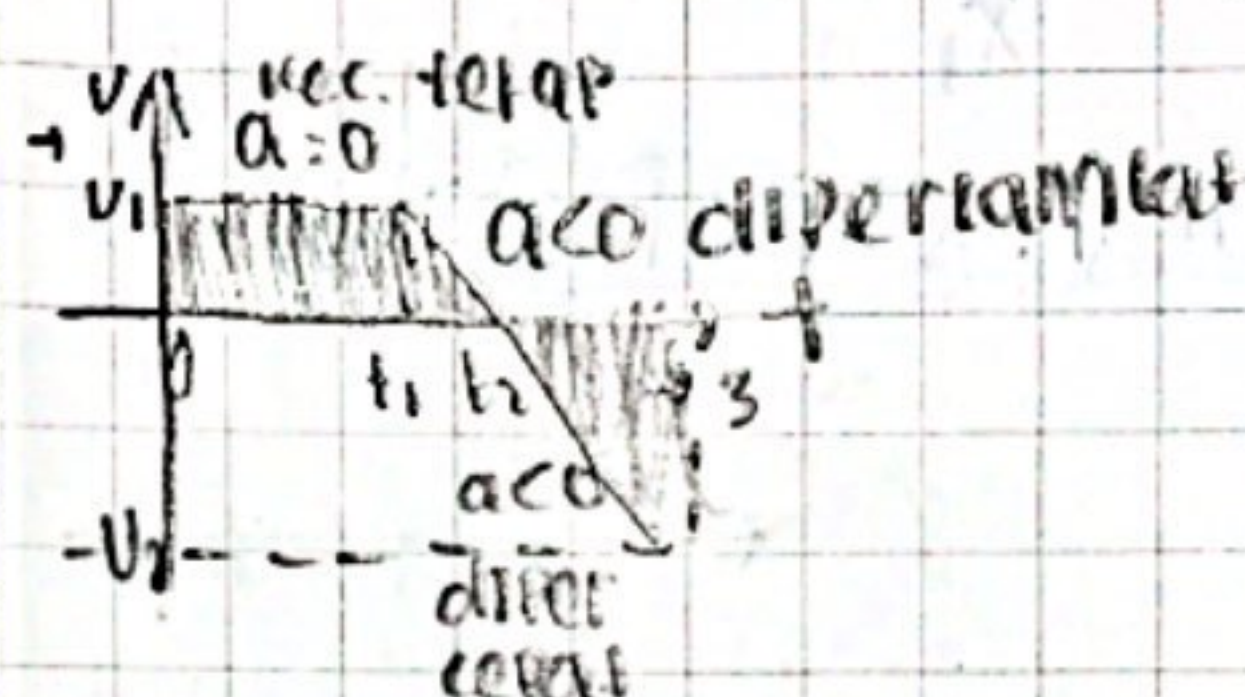 v kec. tetap
a=0
v₁
a<0 diperlambat
0 t₁ t₂ 3 t
a<0
-v₂
diper
cepat